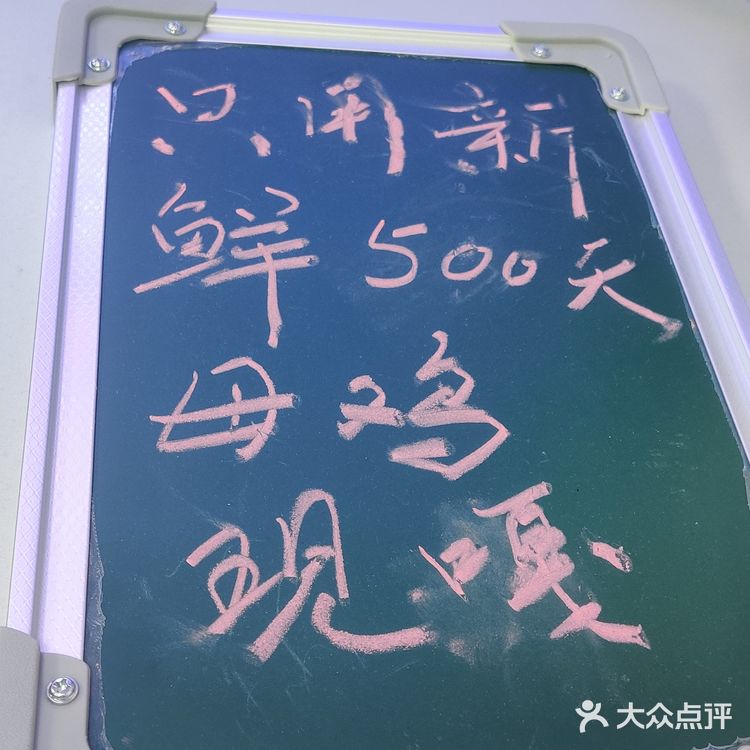 只用新
鲜500天
母鸡
现嘎
大众点评